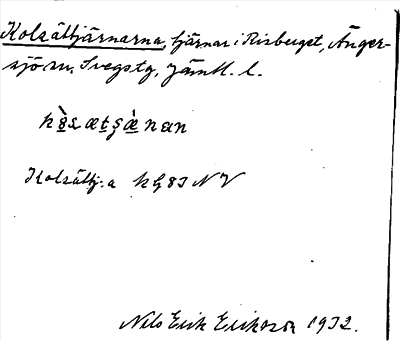 Kolsättjärnarna, tjärnar i Risberget, Änger-
sjö sn, Svegs tg, Jämtl. l.
Kolsättj:a
Nils Erik Eriksson 1932.